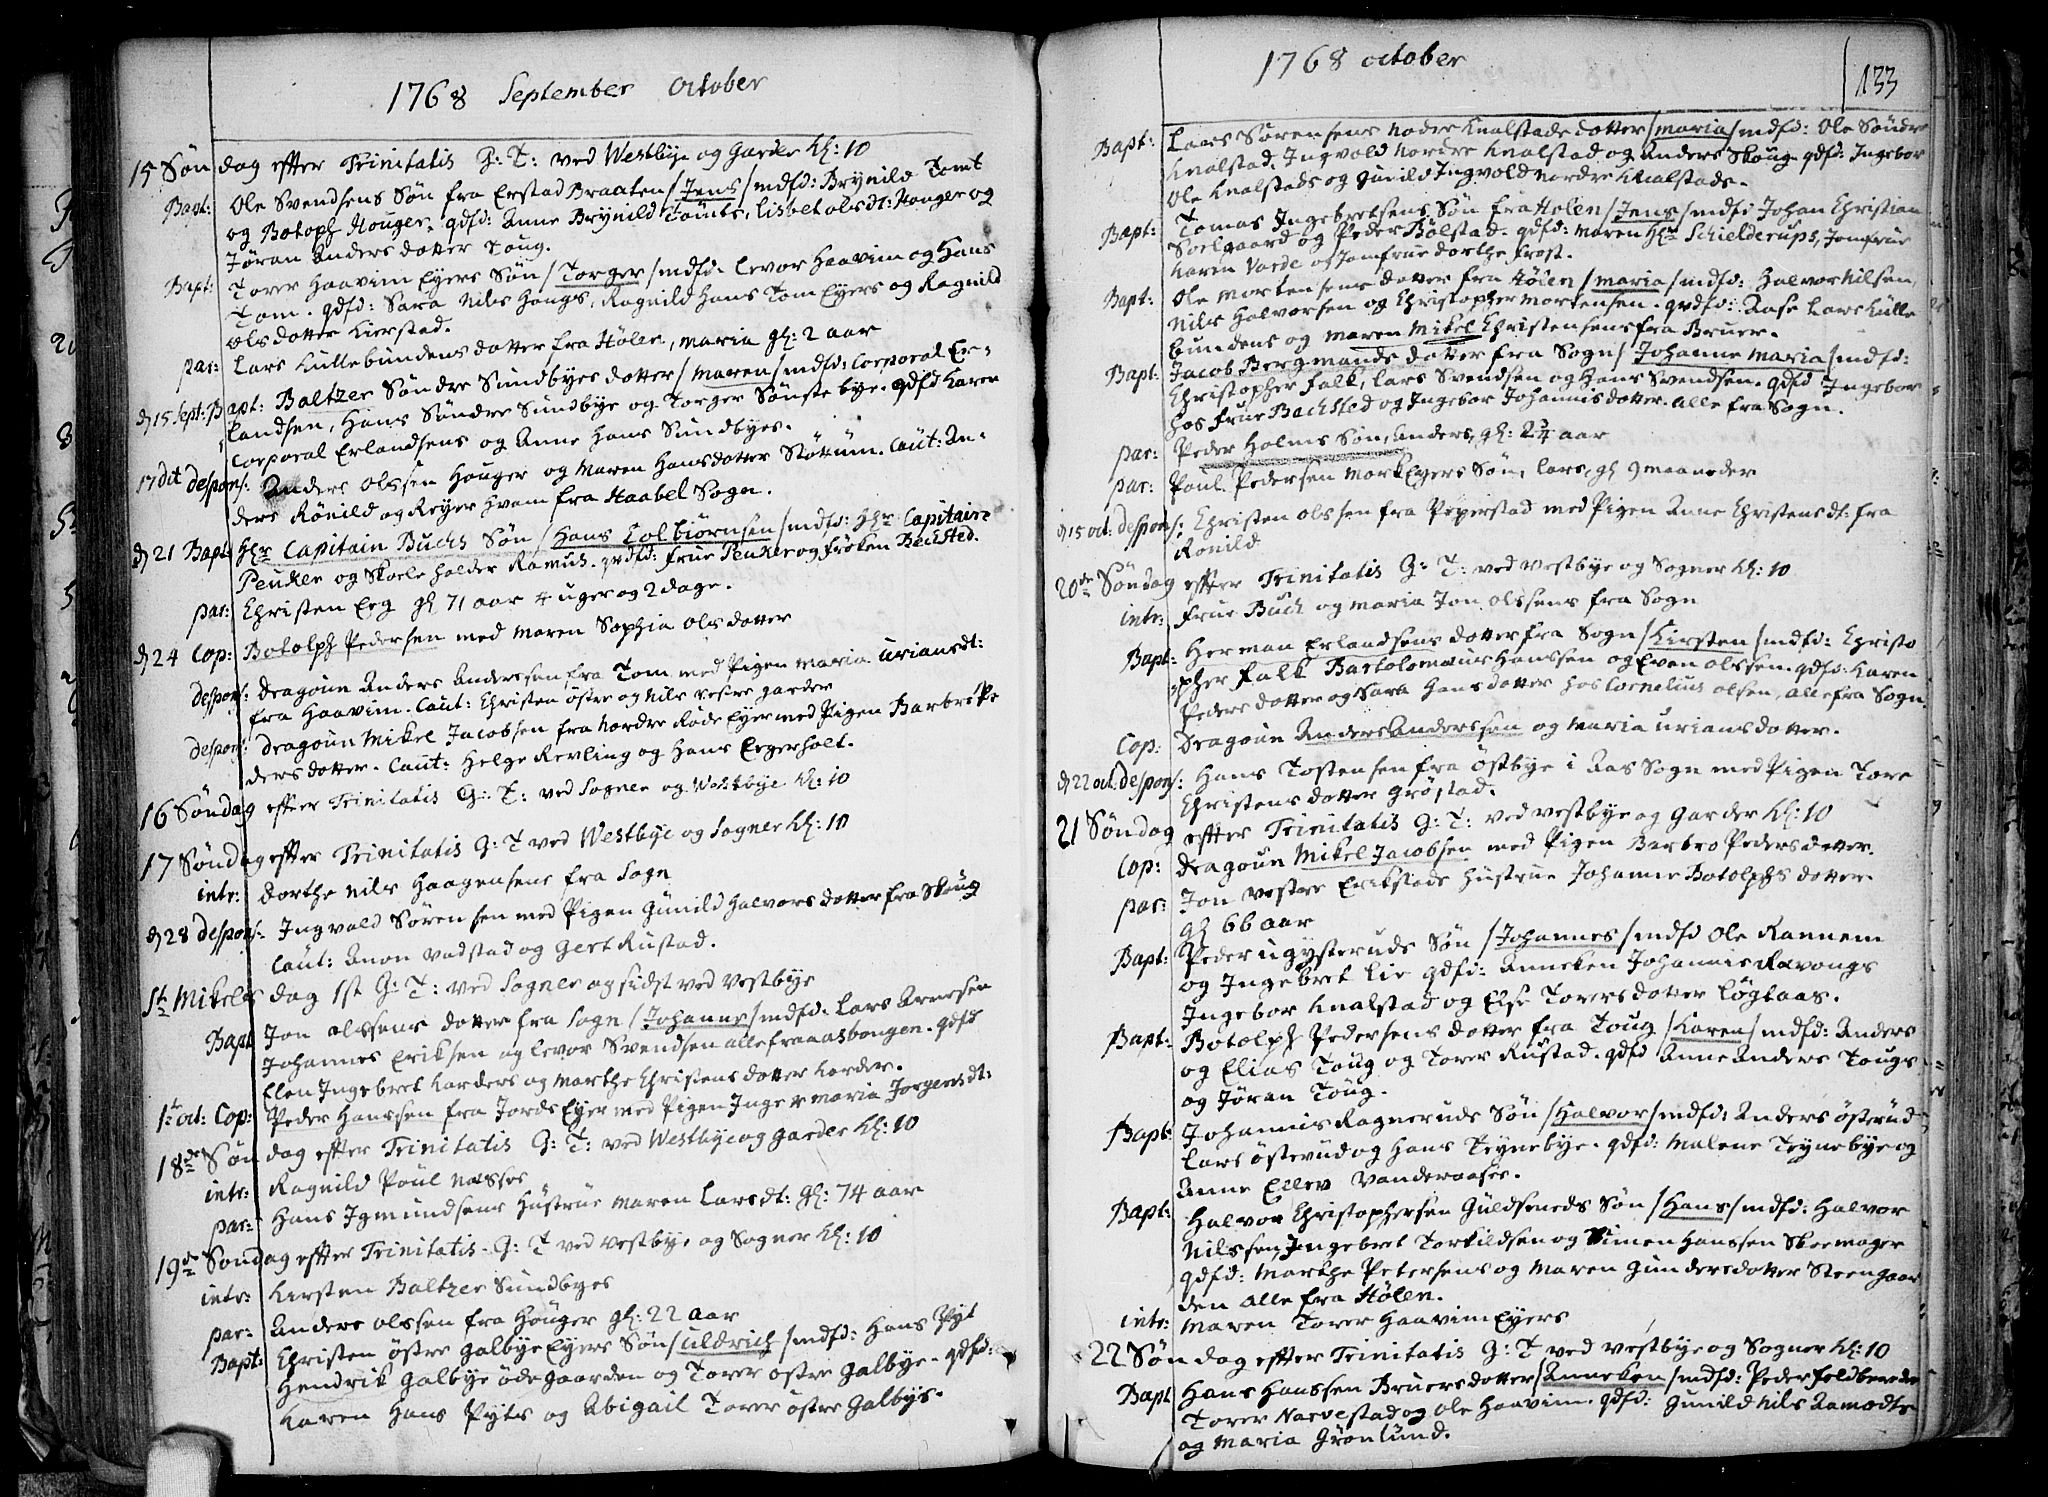 1768 September October
15 Søndag effter Trinitatis G: T: ved Westbye og Garder Kl: 10
Bapt: Ole Svendsens Søn fra Erstad Braaten /Jens/ mdfd: Brynild Tomt
og Botoph Houger, qdfd: Anne Brynild Tomts, Lisbet olsdt: Houger og
Jøran Anders dotter Toug.
Bapt: Torer Haavim Eyers Søn /Torger/ mdfd: Levor Haavim og Hans
Tom. qdfd: Sara Nils Hougs, Ragnild Hans Tom Eyers og Ragnild
olsdotter Kierstad.
par: Lars Kullebundens dotter fra Hølen, maria gl: 2 aar
d 15 Sept: Bapt: Baltzer Søndre Sundbyes dotter /maren/ mdfd: Corporal Er-
landsen, Hans Søndre Sundbye og Torger Sønstebye. qdfd Karen
Corporal Erlandsens og Anne Hans Sundbyes.
17 dit despons: Anders olssen Houger og Maren Hansdotter Støttum. Caut: An-
ders Rønild og Reyer Hvam fra Haabel Sogn.
d 21 Bapt: Hr Capitain Buchs Søn /Hans Colbiørnsen/ mdfd: Hr Capitain
Peuker og Skoeleholder Ramus. qvdfd: Frue Peuker og frøken Bechsted.
par: Christen Eeg gl 71 aar 4 uger og 2 dage.
d 24 Cop: Botolph Pedersen med Maren Sophia olsdotter
despons: dragoun Anders Anderssen fra Tom med Pigen maria urians dt:
fra Haavim. Caut: Christen østre og Nils vestre garder
despons: dragoun Mikel Jacobsen fra Nordre Røde Eyer med Pigen Barbr Pe-
dersdotter. Caut: Helge Revling og Hans Eegerholt.
16 Søndag effter Trinitatis G: T: ved Sogner og Westbye Kl: 10
17 Søndag effter Trinitatis G: T ved Westbye og Sogner Kl: 10
intr: dorthe Nils Haagensens fra Sogn
d 28 despons: Ingvald Sørensen med Pigen Gunild Halvors dotter fra Skoug
Caut: Anon Vadstad og Gert Rustad.
St Mikels dag 1st G: T: ved Sogner og sidst ved Vestbye
Bapt Jon olssens dotter fra Sogn /Johanne/ mdfd: Lars Arnesen
Johannes Eriksen og Levor Svendsen alle fra aasbongen. qdfd
Ellen Ingebret Korders og Marthe Christens dotter Korder.
1t oct: Cop: Peder Hanssen fra Jords Eyer med Pigen Inger maria Jørgens dt:
18de Søndag effter Trinitatis G: T: ved Westbye og garder Kl: 10
intr: Ragnild Poul Næsses
par: Hans Igmundsens Hustrue Maren Larsdt: gl: 74 aar
19de Søndag effter Trinitatis G: T ved Vestbye og Sogner Kl: 10
intr: Kirsten Baltzer Sundbyes
par: Anders olssen fra Houger gl: 22 aar
Bapt: Christen østre Galbye Eyers Søn /uldrich/ mdfd: Hans Pyt
Hendrik Galbye ødegaarden og Torer østre Galbye. qdfd:
Karen Hans Pyts og Abigail Torer østre Galbys.
1768 October
133
Bapt: Lars Sørensens Nodre Knalstads dotter /maria/ mdfd: Ole Søndre
Knalstad, Ingvold Nordre Knalstad og Anders Skoug. qdfd: Ingebor
Ole Knalstads og Gunild Ingvold Nordre Knalstads.
Bapt: Tomas Ingebretsens Søn fra Holen /Jens/ mdfd Johan Christian
Soelgaard og Peder Bølstad. qdfd: Maren Hr Schielderups, Jomfrue
Karen Varde og Jomfrue dorthe frost.
Bapt: Ole Mortensens dotter fra Hølen /maria/ mdfd: Halvor Nilsen,
Nils Halvorsen og Christopher Mortensen. qvdfd: Aase Lars Kulle
bundens og maren Mikel Christensens fra Bruer.
Bapt: Jacob Bergmands dotter fra Sogn /Johanne maria/ mdfd:
Christopher Falk, Lars Svendsen og Hans Svendsen. qdfd Ingebor
hos frue Bachsted og Ingebor Johannis dotter. alle fra Sogn.
par: Peder Holms Søn, Anders, gl: 2 3/4 aar
par: Poul Pedersen Mork Eyers Søn, Lars, gl 9 maaneder
d 15 oct: despons: Christen olssen fra Peperstad med Pigen Anne Christens dt: fra
Rønild
20de Søndag effter Trinitatis G: T: ved Vestbye og Sogner Kl: 10
intr: Frue Buch og maria Jon olssens fra Sogn
Bapt: Herman Erlandsens dotter fra Sogn /Kirsten/ mdfd: Christo
pher Falk Bartolomæus Hanssen og Even olssen. qdfd: Karen
Peders dotter og Sara Hans dotter hos Cornelius olsen, alle fra Sogn.
Cop: Dragoun Anders Anderssen og Maria urians dotter.
d 22 oct: despons: Hans Tostensen fra østbye i Aas Sogn med Pigen Tore
Christens dotter Grøstad.
21 Søndag effter Trinitatis G: T: ved Vestbye og Garder Kl: 10
Cop: Dragoun Mikel Jacobsen med Pigen Barbro Peders dotter.
par: Jon Vestre Erikstads Hustrue Johanne Botolphs dotter.
gl 66 aar
Bapt: Peder ugysteruds Søn /Johannes/ mdfd Ole Rannem
og Ingebret Lie qdfd: Anneken Johannis Ravongs
Ingebor Knalstad og Else Torers dotter Løgtaas.
Bapt: Botolph Pedersens dotter fra Toug /Karen/ mdfd: Anders
og Elias Toug og Torer Rustad. qdfd Anne Anders Tougs
og Jøran Toug.
Bapt: Johannis Ragneruds Søn /Halvor/ mdfd: Anders østerud
Lars østerud og Hans Teynebye. qdfd: Malene Teynebye og
Anne Ellev Vanderaases.
Bapt: Halvor Christophersen Guldseneds Søn /Hans/ mdfd: Halvor
Nilssen, Ingebret Torkildsen og Simen Hanssen Skoemager
qdfd: Marthe Petersens og Maren Gundersdotter Steengaar
den alle fra Hølen.
intr: Maren Torer Haavim Eyers
22 Søndag effter Trinitatis G: T ved Vestbye og Sogner Kl: 10
Bapt Hans Hanssen Bruers dotter /Anneken/ mdfd: Peder Feldberede
Torer Narvestad og Ole Haavim. qdfd: Gunild Nils Aamodts
og Maria Grønlund.